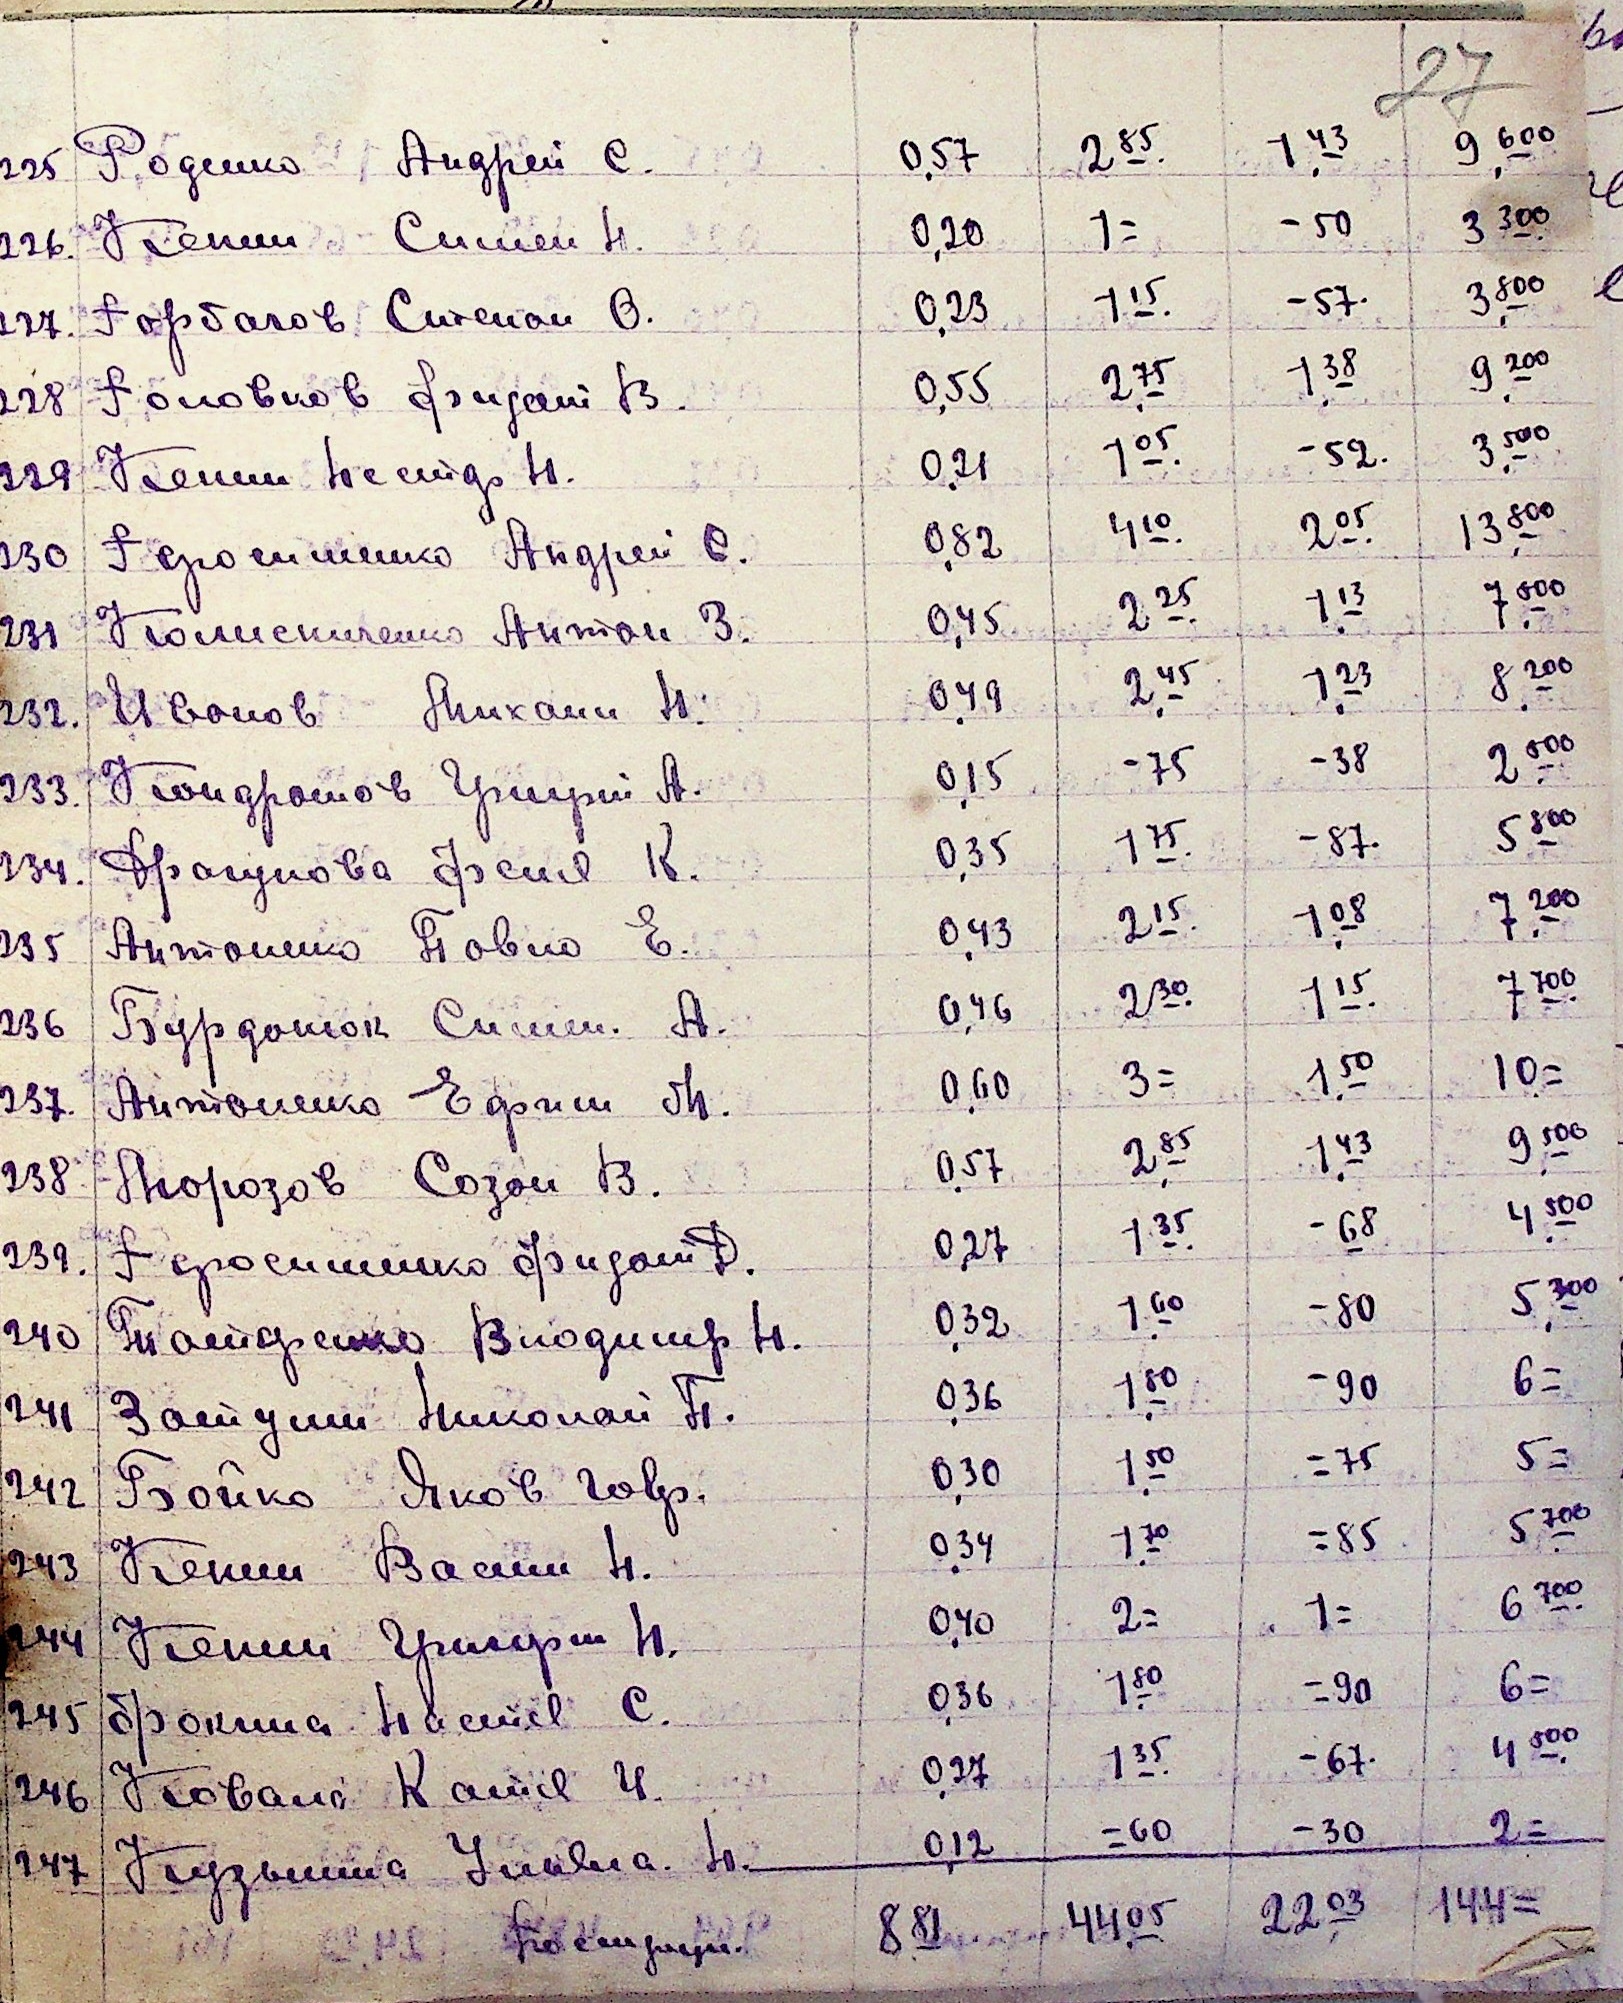 27
225 Роденко Андрей С. 0,57 2 85. 1 43 9 600
226. Кенин Симеон Н. 0,20 1= -50 3 300
227. Горбачов Степан О. 0,23 1 15. -57. 3 800
228 Головков Фидат В. 0,55 2 75 1 38 9 200
229 Кенин Нестер Н. 0,21 1 05. -52. 3 500
230 Герасименко Андрей С. 0,82 4 10. 2 05. 13 800
231 Колисниченко Антон З. 0,45 2 25. 1 13 7 500
232. Иванов Михаил Н. 0,49 2 45 1 23 8 200
233. Кондратов Григрий А. 0,15 -75 -38 2 500
234. Драгунова Фекл К. 0,35 1 75. -87. 5 800
235 Антоненко Павло Е. 0,43 2 15. 1 08 7 200
236 Бурдонюк Симон. А. 0,46 2 30. 1 15. 7 700
237. Антоненко Ефим М. 0,60 3= 1 50 10=
238 Морозов Созон В. 0,57 2 85 1 43 9 500
239. Геросименко Фидот Д. 0,27 1 35. -68 4 500
240 Владимир Н. 0,32 1 60 -80 5 300
241 Николай П. 0,36 1 80 -90 6=
242 Бойко Яков Говр. 0,30 1 50 =75 5=
243 Кенин Васили Н. 0,34 1 70 =85 5 700
244 Кенин Григори Н. 0,40 2= 1= 6 700
245 Фокина Настя С. 0,36 1 80 =90 6=
246 Коваль Катя И. 0,27 1 35. -67. 4 500
247 Кузьмина Ульяна. Н. 0,12 =60 -30 2=
По стра 8 81 44 05 22 03 144=